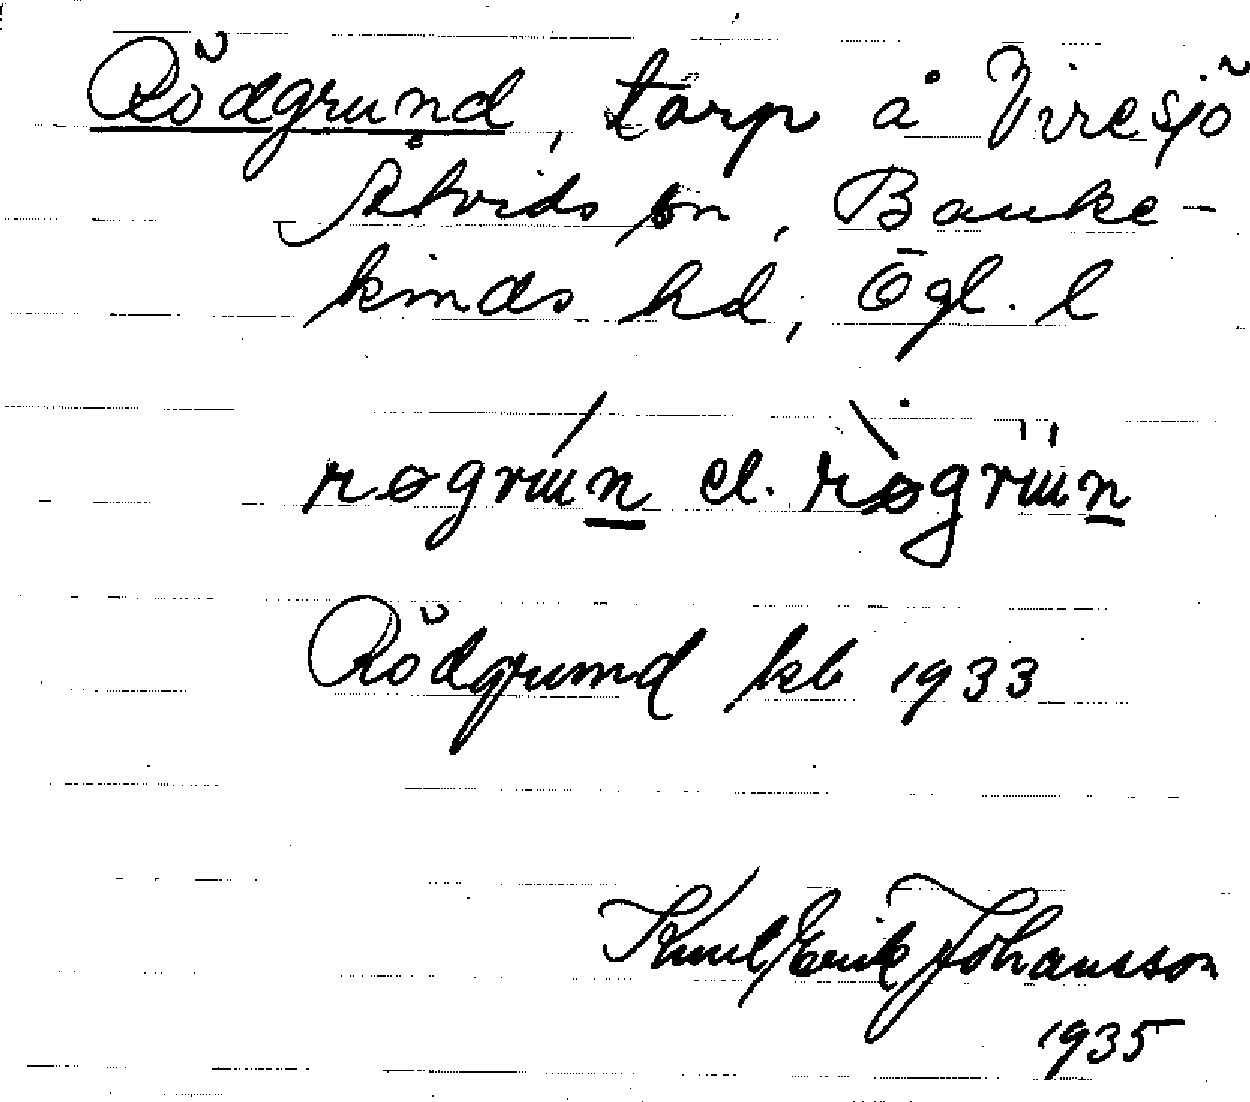 Rödgrund, torp å Viresjö
Åtvids sn, Banke-
kinds hd, Ögl. l
røgrɯn el. røgrɯn
Rödgrund kb 1933
Knut Erik Johansson
1935